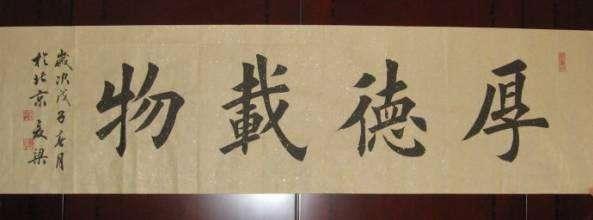 厚德載物
歲次戊子春月
於北京